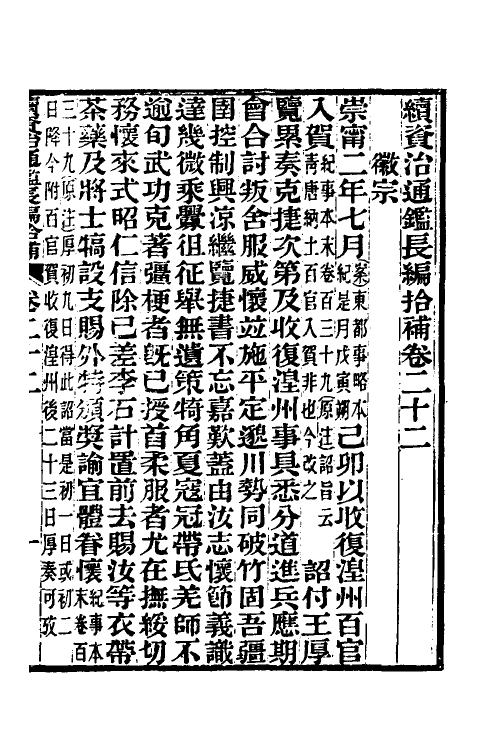 續資治通鑑長編拾補卷二十二
徽宗
崇甯二年七月(案東都事略本紀是月戊寅朔)己卯以收復湟州百官
入賀(紀事本末卷百三十九原注詔旨云青唐納土百官入賀非也今改之)詔付王厚
覽累奏克捷次第及收復湟州事具悉分道進兵應期
會合討叛舍服威懷竝施平定邈川勢同破竹固吾疆
圉控制興涼繼覽捷書不忘嘉歎蓋由汝志懷節義識
達幾微乘釁徂征舉無遺策犄角夏寇冠帶氐羌師不
逾旬武功克著彊梗者旣已授首柔服者尤在撫綏切
務懷來式昭仁信除已差李石計置前去賜汝等衣帶
茶藥及將士犒設支賜外特須奬諭宜體眷懷(紀事本末卷百
三十九原注厚初九日得此詔當是初一日或初二
日降今附百官賀收復湟州後二十三日厚奏可攷
續資治通鑑長編拾補 卷二十二 一